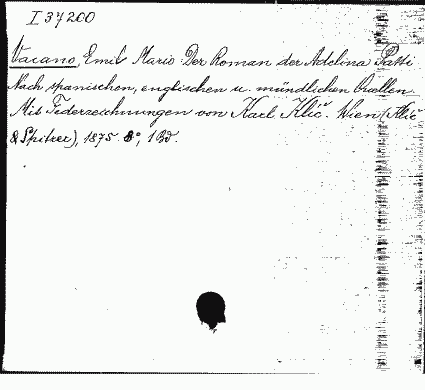 I 37200
Vacano, Emil Mario Der Roman der Adelina Patti
Nach spanischen, englischen u. mündlichen Quellen.
Mit Federzeichnungen von Karl Klič. Wien (Klič
& Spitzer), 1875 8°, 1 Bd.